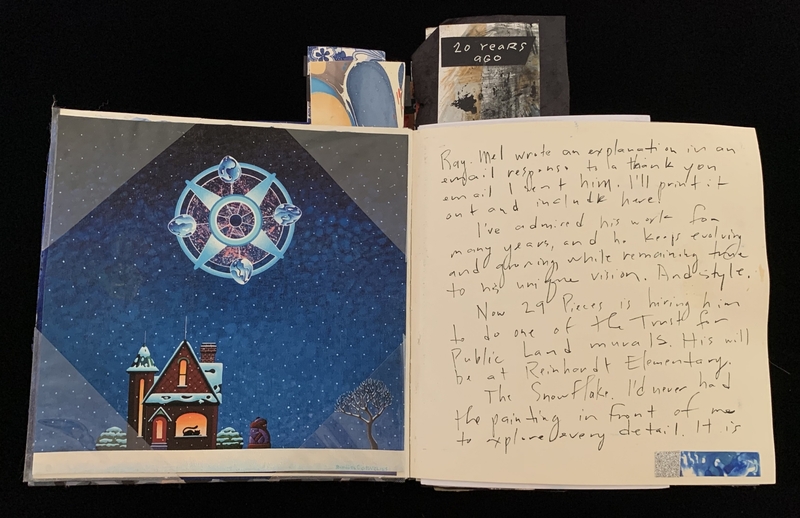 20 years
ago
Ray-Mel wrote an explanation in an
email response to a thank you
email I sent him. I'll print it
out and include here!
I've admired his work for
many years, and he keeps evolving
and growing while remaining true
to his unique vision. And style.
Now 29 Pieces is hiring him
to do one of the Trust for
Public Land murals. His will
be at Reinhardt Elementary.
The Snowflake. I'd never had
the painting in front of me
to explore every detail. It is